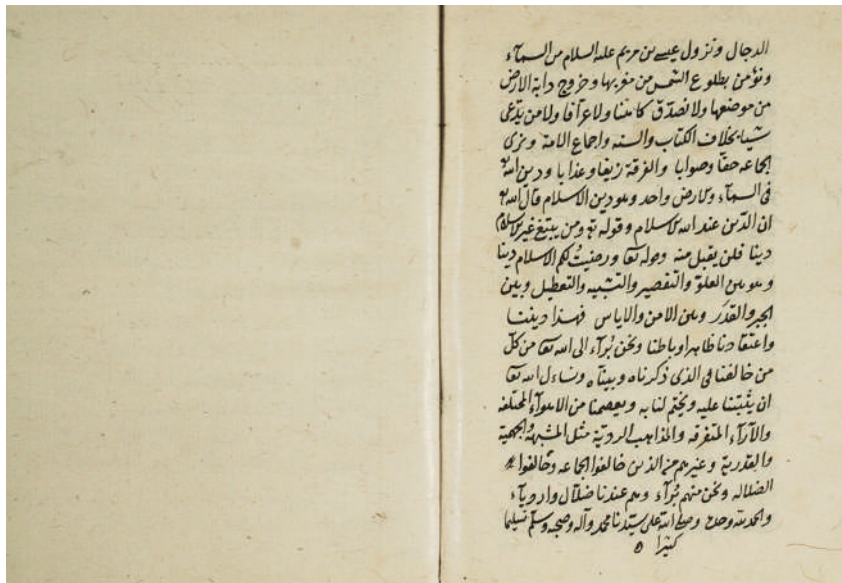 الدجال ونزول عيسى بن مريم عليه السلام من السمآء
ونؤمن بطلوع الشمس من مغربها وخروج دابة الارض
من موضعها ولا نصدق كاهنا ولا عرافا ولا من يدعى
شيا بخلاف الكتاب والسنه واجماع الامة ونرى
الجماعه حقا وصوابا والفرقة زيغا وعذابا ودين الله
فى السمآء والارض واحد وهو دين الاسلام قال الله
ان الدين عند الله الاسلام وقوله تع ومن يبتغ غير الاسلام
دينا فلن يقبل منه وقوله تعا ورضيت لكم الاسلام دينا
وهو بين الغلو والتقصير والتشبيه والتعطيل وبين
الجبر والقدر وبين الامن والاياس فهذا ديننا
واعتقادنا ظاهرا وباطنا ونحن برآء الى الله تعا من كل
من خالفنا فى الذى ذكرناه وبيناه ونساءل الله تعا
ان يثبتنا عليه ويختم لنا به ويعصمنا من الاهوآء المختلفه
والآرآء المتفرقه والمذاهب الردية مثل المشبهة والجهمية
والقدرية وغيرهم من الذين خالفوا الجماعه وحالفوا
الضلاله ونحن منهم برآء وهم عندنا ضلال وارديآء
والحمد لله وحده وصلى الله على سيدنا محمد وآله وصحبه وسلم تسليما
كثيرا